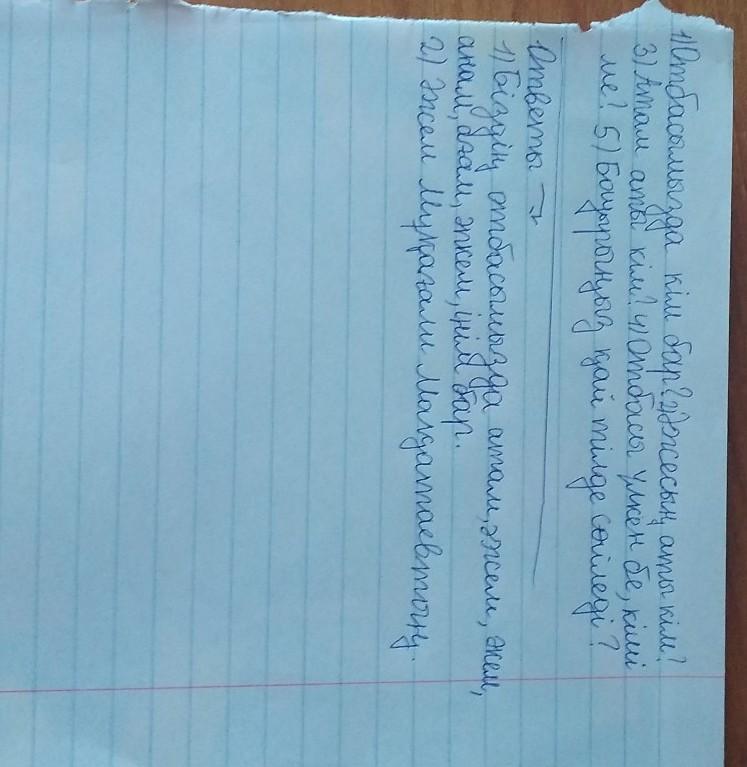 1) Отбасымызда кім бар? 2) Әжесың аты кім?
3) Атам аты кім? 4) Отбасы үлкен бе, кіші
ме? 5) Бауырыңыз қай тілде сөйледі?
Ответы →
1) Біздің отбасымызда атам, әжем, әкем,
анам, ағам, әпкем, інім бар.
2) Әжем Мұқағали Мағдатаевтоңу.